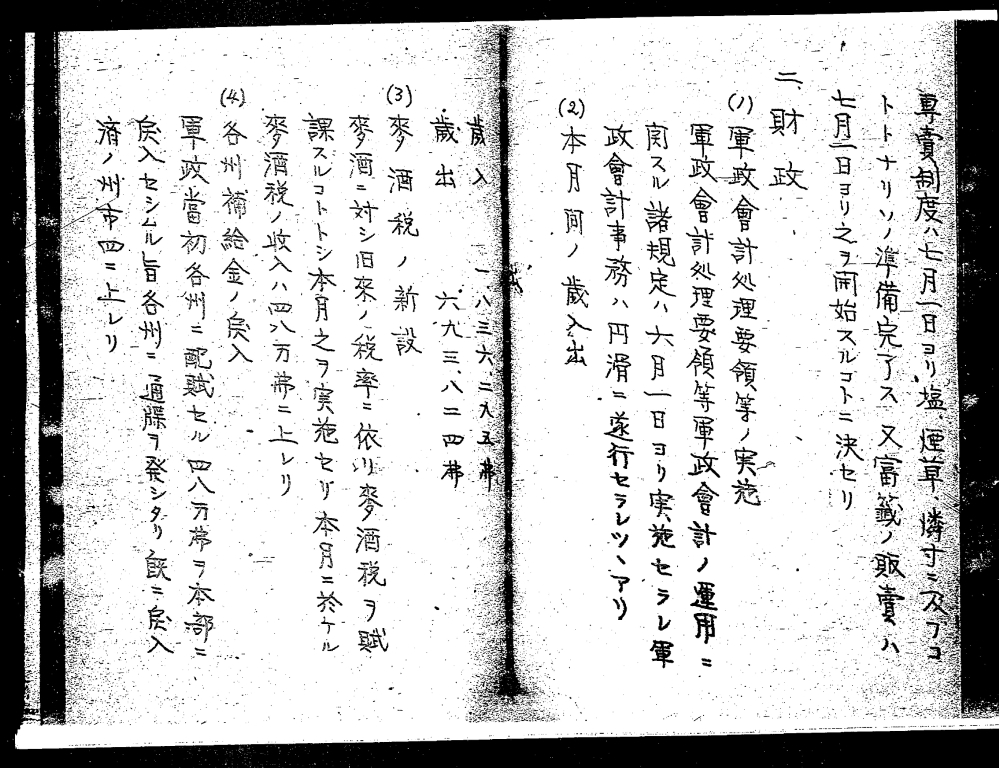 専賣制度ハ七月一日ヨリ塩、煙草、燐寸ニ及フコ
トトナリソノ準備完了ス 又富籤ノ販賣ハ
七月一日ヨリ之ヲ開始スルコトニ決セリ
二、財政
(1) 軍政會計処理要領等ノ実施
軍政會計処理要領等軍政會計ノ運用ニ
関スル諸規定ハ六月一日ヨリ実施セラレ軍
政會計事務ハ円滑ニ遂行セラレツヽアリ
(2) 本月間ノ歳入出
歳入 一、八三六、二九五弗
歳出 六九三、八二四弗
(3) 麥酒税ノ新設
麥酒ニ対シ旧來ノ税率ニ依リ麥酒税ヲ賦
課スルコトトシ本月之ヲ実施セリ 本月ニ於ケル
麥酒税ノ收入ハ四八万弗ニ上レリ
(4) 各州補給金ノ戻入
軍政當初各州ニ配賦セル四八万弗ヲ本部ニ
戻入セシムル旨各州ニ通牒ヲ発シタリ 既ニ戻入
済ノ州市四ニ上レリ